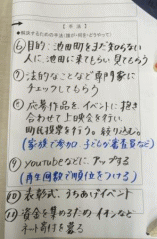 【方法】
●解決するための方法(誰が・何をどうやって)
⑥目的:池田町をまだ知らない
人に池田に来てもらい見てもらう
⑦法的なことなど専門家に
チェックしてもらう
⑧応募作品をイベントに抱き
合わせて上映会を行い、
町民投票を行う。絞り込む。
(家族で参加 子どもが審査員など)
⑨youtubeなどに アップする
(再生回数で順位をつける)
⑩表彰式、うちあげイベント
⑪資金を集めるため イオンなど
ネット寄付を募る